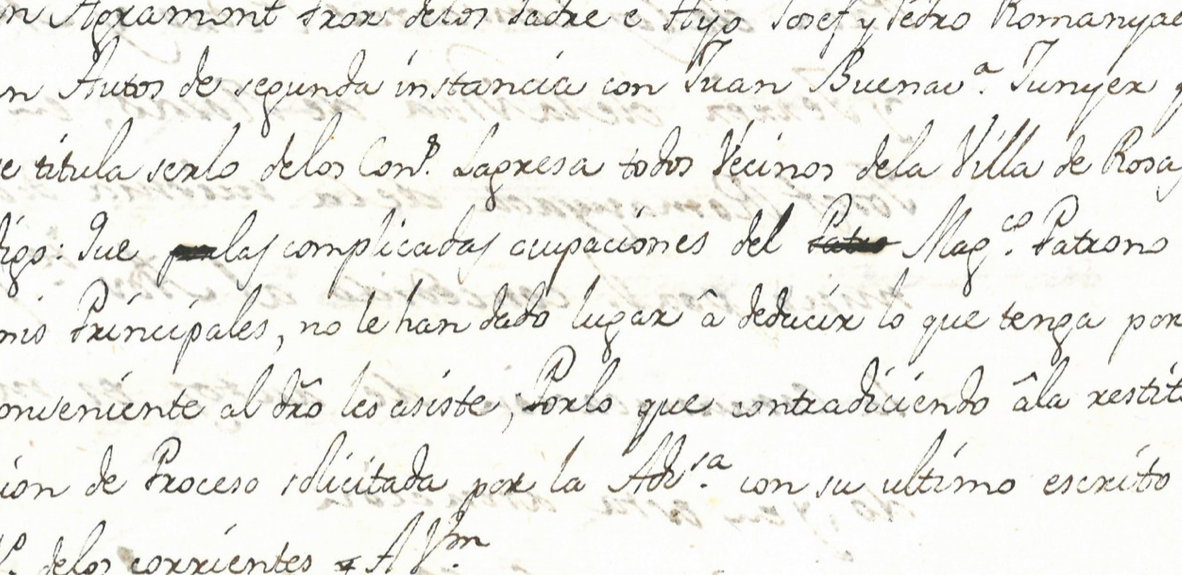 n Agramont Pror delos Padre e Hijo Josef y Pedro Romanyac
n Autos de segunda instancia con Juan Buenav.ª Junyer q
e titula serlo delos Con.s Lagresa todos Vecinos dela Villa de Rosas
digo: Que las complicadas ocupaciones del Mag.co Patrono
mis Principales, no le han dado lugar â deducir lo que tenga por
onveniente al dr̃o les asiste; Porlo que contradiciendo âla restitu
ion de Proceso solicitada por la Adv.sa con su ultimo escrito
delos corrientes = A V.m